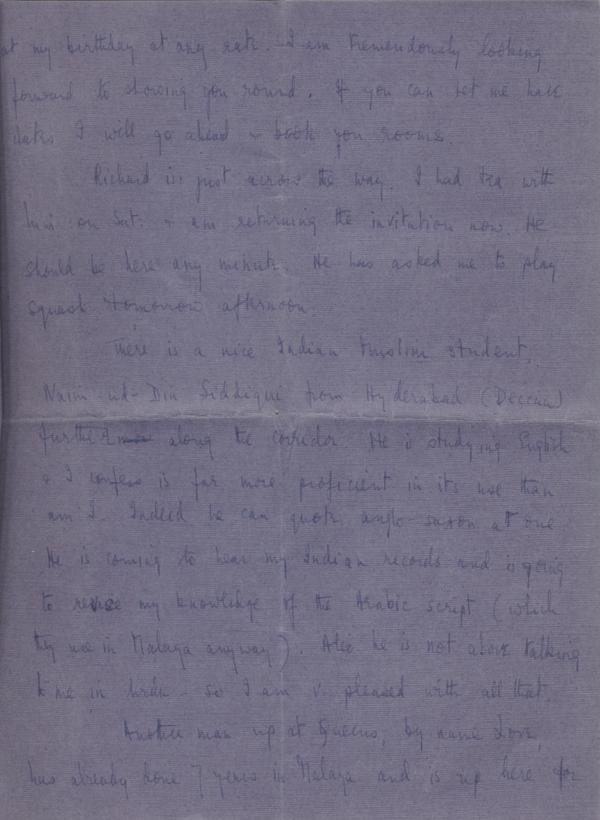 at my birthday at any rate. I am tremendously looking
forward to showing you round. If you can let me have
dates I will go ahead & book you rooms.
Richard is just across the way. I had tea with
him on Sat: & am returning the invitation now. He
should be here any minute. He has asked me to play
squash tomorrow afternoon.
There is a nice Indian Muslim student,
Naim-ud-Din Siddiqui from Hyderabad (Deccan)
further along the corridor. He is studying English
& I confess is far more proficient in its use than
am I. Indeed he can quote anglo-saxon at one.
He is coming to hear my Indian records and is going
to revise my knowledge of the Arabic script (which
they use in Malaya anyway). Also he is not above talking
to me in Urdu - so I am v. pleased with all that.
Another man up at Queens, by name Love,
has already done 7 years in Malaya and is up here for